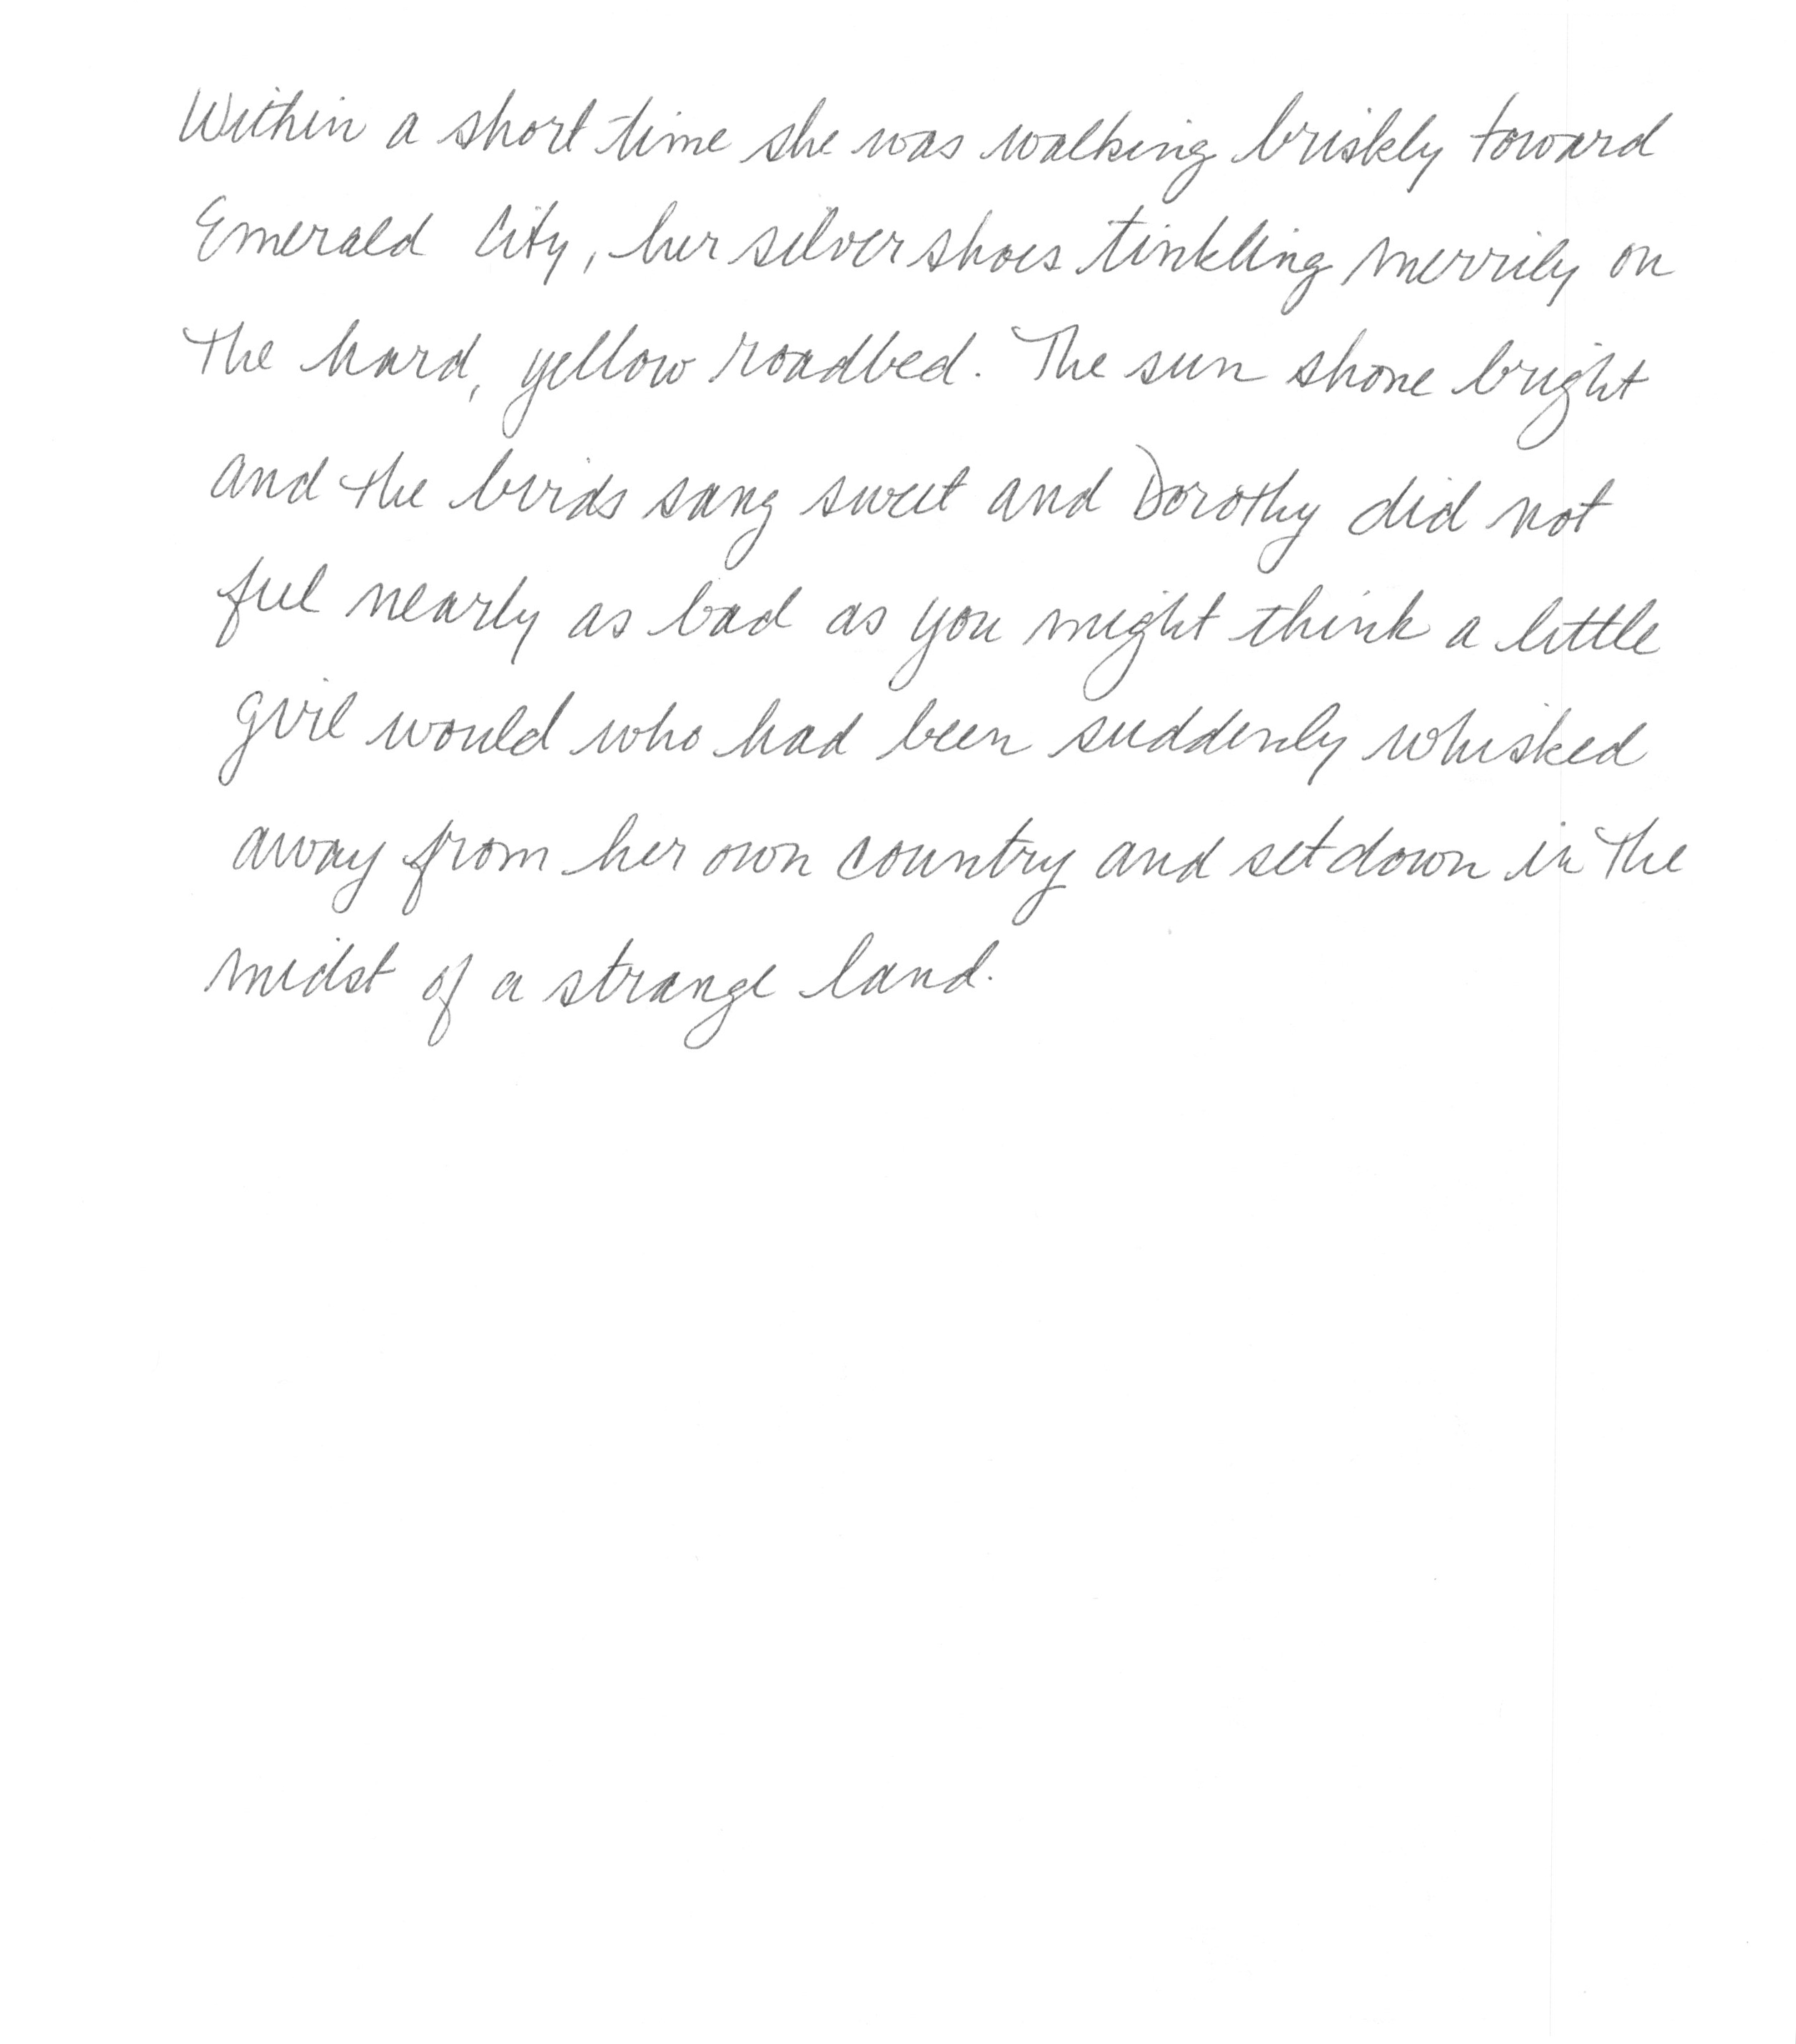 Within a short time she was walking briskly toward
Emerald City, her silver shoes tinkling merrily on
the hard, yellow roadbed. The sun shone bright
and the birds sang sweet and Dorothy did not
feel nearly as bad as you might think a little
girl would who had been suddenly whisked
away from her own country and set down in the
midst of a strange land.